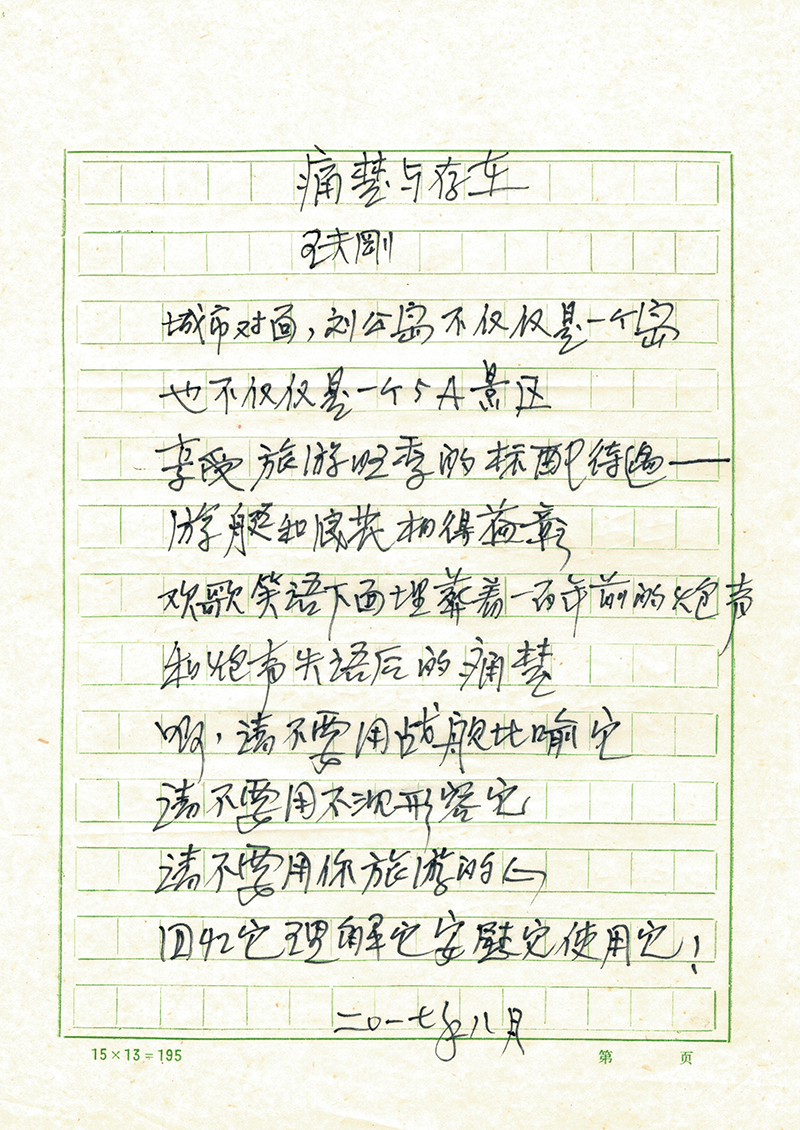 痛楚与存在
王夫刚
城市对面，刘公岛不仅仅是一个岛
也不仅仅是一个5A景区
享受旅游旺季的标配待遇——
游艇和浪花相得益彰
欢歌笑语下面埋葬着一百年前的炮声
和炮声失语后的痛楚
啊，请不要用战舰比喻它
请不要用不沉形容它
请不要用你旅游的心
回忆它理解它安慰它使用它！
二〇一七年八月
15×13=195 第 页